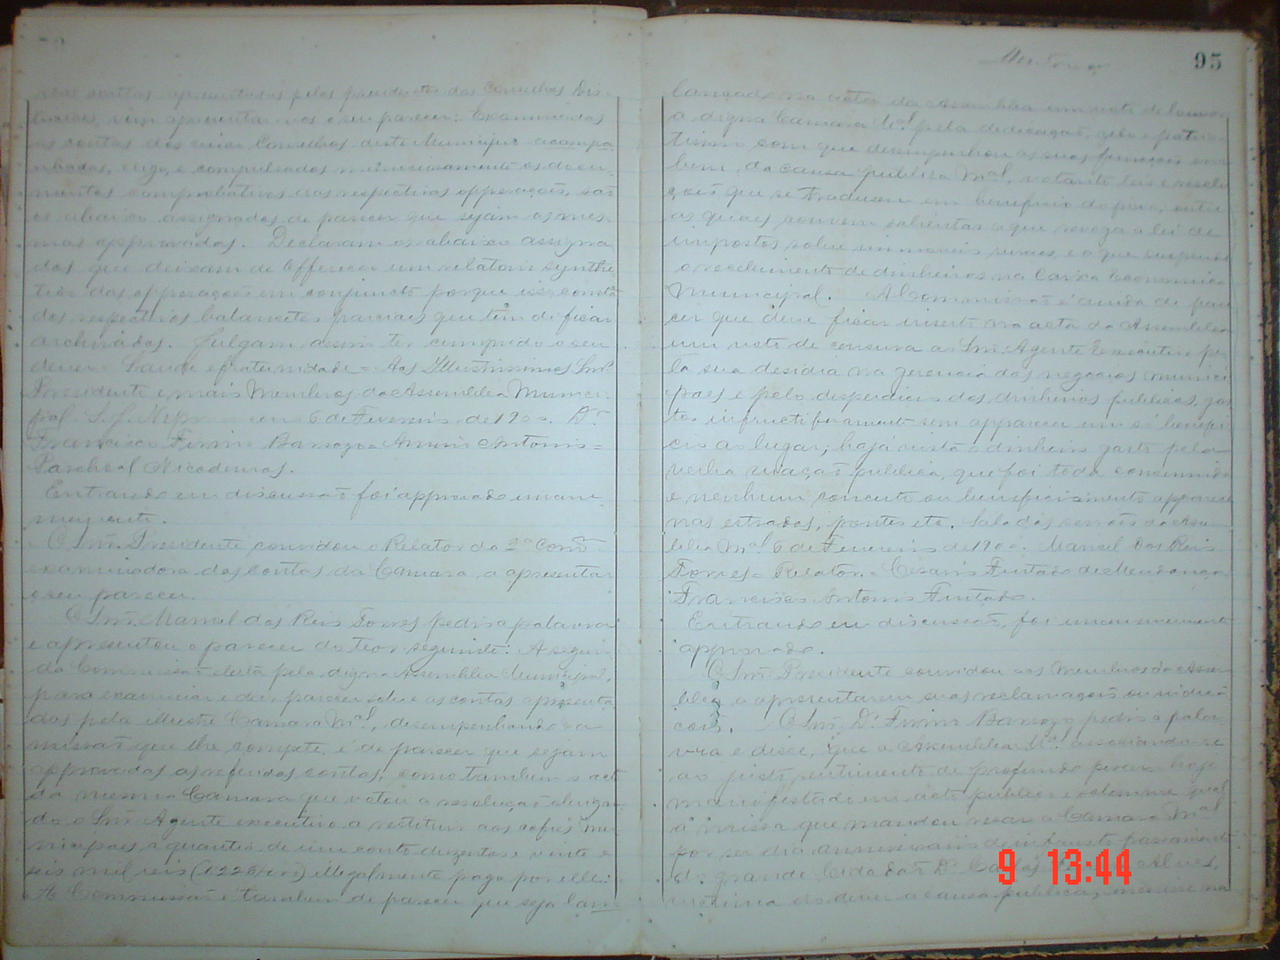 suas contas apresentadas pelos presidentes dos Conselhos Dis-
trictaes, vem apresentar-vos o seu parecer: Examinadas
as contas dos cinco Conselhos deste Municipio acompa-
nhadas, digo, e compulsados minuciosamente os docu-
mentos comprobativos das respectivas opperações, são
os abaixo assignados de parecer que sejam as mes-
mas approvadas. Declaram os abaixo assigna
dos que deixam de offerecer um relatorio synthe
tico das opperações em conjuncto porque isso consta
dos respectivos balancetes parciaes que têm de ficar
archivados. Julgam assim ter cumprido o seu
dever. Saude e fraternidade = Aos Illustrissimos Snrs.
Presidente e mais Membros da Assembléa Munici-
pal. S. J. Nepomuceno 6 de Fevereiro de 1900. Dr.
Francisco Firmo Barrozo = Antonio =
Paschoal Nicodemos.
Entrando em discussão foi approvado unani
memente.
O Snr. Presidente convidou o Relator da 2ª Comm.
examinadora das contas da Camara, a apresentar
o seu parecer.
O Snr. Manoel dos Reis Torres pediu a palavra
e apresentou o parecer do teor seguinte: A segun-
da Commissão eleita pela digna Assembléa Municipal,
para examinar e dar parecer sobre as contas apresenta
das pela illustre Camara Mal., desempenhando a
missão que lhe compete, é de parecer que sejam
approvadas as referidas contas, como tambem o acto
da mesma Camara que votou a resolução obrigan-
do o Snr. Agente executivo a restituir aos cofres mu-
nicipaes a quantia de um conto duzentos e vinte e
seis mil reis (1:226$000) illegalmente paga por elle.
A Commissão é tambem de parecer que seja lan-
95
lançado na acta da Assembléa um voto de louvor
a digna Camara Mal. pela dedicação, zelo e patrio-
tismo com que desempenhou as suas funcções em
bem da causa publica Mal., votando leis e resolu
ções que se traduzem em beneficio do povo, entre
as quaes convem salientar a que revoga a lei de
impostos sobre immoveis ruraes, e a que suspende
o recolhimento de dinheiros na Caixa Economica
Municipal. A Commissão é ainda de pare
cer que deve ficar inserto na acta da Assembléa
um voto de censura ao Snr. Agente Executivo pe-
la sua desidia na gerencia dos negocios munici
paes e pelo desperdicio dos dinheiros publicos, gas
tos infructiferamente sem apparecer um só benefi-
cio ao lugar; haja vista o dinheiro gasto pela
verba viação publica, que foi toda consumida
e nenhum concerto ou beneficiamento apparece
nas estradas, pontes etc. Sala das sessões da Assem
bléa Mal. 6 de Fevereiro de 1900. Manoel dos Reis
Torres = Relator. = Cesario Furtado de Mendonça
Francisco Antonio Furtado.
Entrando em discussão, foi unanimemente
approvado.
O Snr. Presidente convidou aos Membros da Assem
bléa a apresentarem suas reclamações ou indica
ções. O Snr. Dr. Firmo Barrozo pediu a pala-
vra e disse, que a Assembléa Mal. associando-se
ao justo sentimento de profundo pezar hoje
manifestado em acto publico e solemne qual
a missa que mandou resar a Camara Mal.
por ser dia anniversario do passamento
do grande cidadão Dr. Carlos Alves,
victima do dever a causa publica,